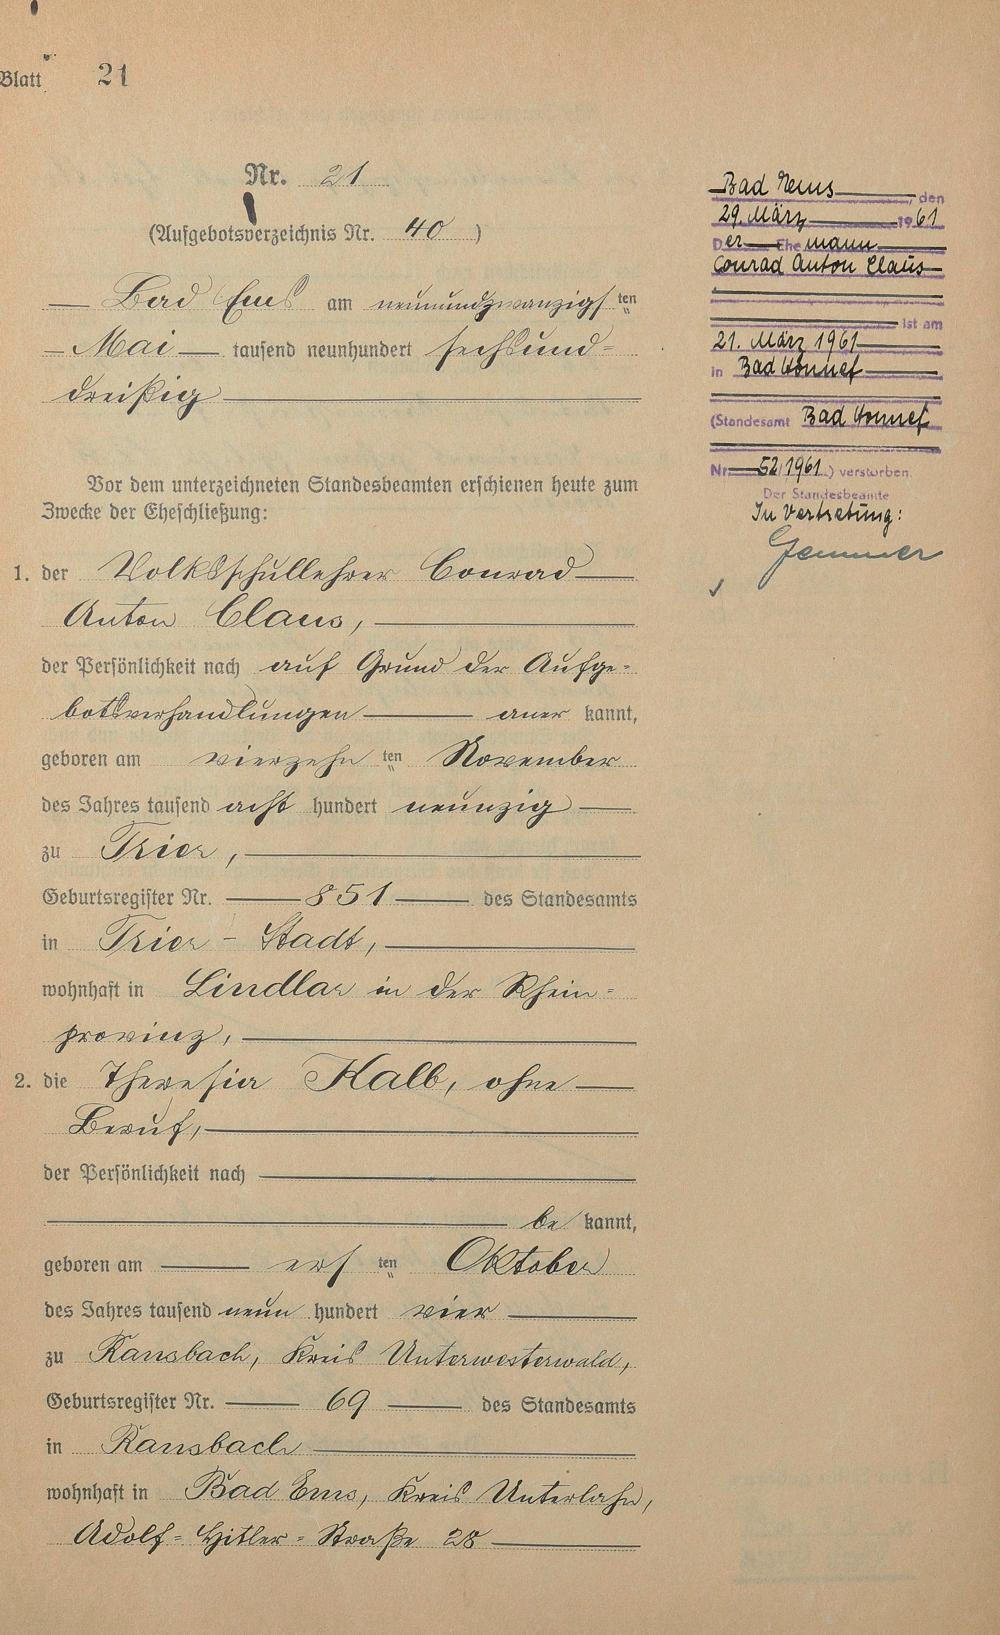 Blatt 21
Nr. 21
(Aufgebotsverzeichnis Nr. 40)
Bad Ems am neunundzwanzigsten
Mai tausend neunhundert sechsund-
dreißig
Vor dem unterzeichneten Standesbeamten erschienen heute zum
Zwecke der Eheschließung:
1. der Volksschullehrer Conrad
Anton Claus,
der Persönlichkeit nach auf Grund der Aufge-
botsverhandlungen aner kannt,
geboren am vierzehnten November
des Jahres tausend acht hundert neunzig
zu Trier,
Geburtsregister Nr. 851 des Standesamts
in Trier - Stadt,
wohnhaft in Lindlar in der Rhein-
provinz,
2. die Theresia Kalb, ohne
Beruf,
der Persönlichkeit nach
be kannt,
geboren am ersten Oktober
des Jahres tausend neun hundert vier
zu Ransbach, Kreis Unterwesterwald,
Geburtsregister Nr. 69 des Standesamts
in Ransbach
wohnhaft in Bad Ems, Kreis Unterlahn,
Adolf-Hitler-Straße 28
Bad Ems, den
29. März 1961
Der Ehemann
Conrad Anton Claus
ist am
21. März 1961
in Bad Honnef
(Standesamt Bad Honnef
Nr. 52/1961) verstorben.
Der Standesbeamte
In Vertretung:
Gemmer